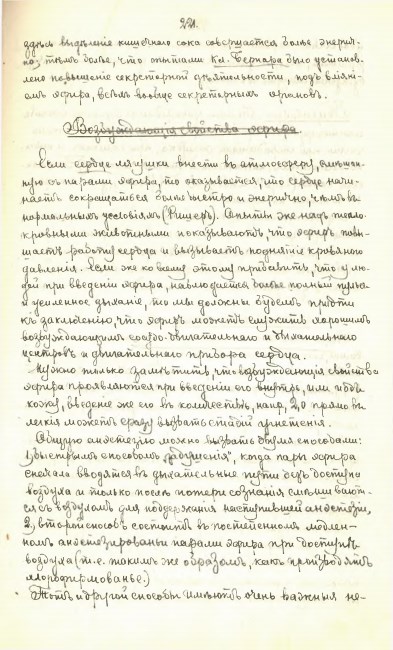 221.
здѣсь выдѣленіе кишечнаго сока совершается болѣе энергич-
но, тѣмъ болѣе, что опытами Кл. Бернара было установ-
лено повышеніе секреторной дѣятельности, подъ влія-
мъ эфира, всѣхъ вообще секреторныхъ органовъ.
Возбуждающія свойства эфира
Если сердце лягушки внести въ атмосферу, смѣшан-
ную съ парами эфира, то оказывается, что сердце начи-
наетъ сокращаться болѣе быстро и энергично, чѣмъ въ
нормальныхъ условіяхъ (Рише). Опыты же надъ тепло-
кровными животными показываютъ, что эфиръ повы-
шаетъ работу сердца и вызываетъ поднятіе кровяного
давленія. Если же ко всему этому прибавить, что у лю-
дей при введеніи эфира, наблюдается болѣе полный пульсъ
и усиленное дыханіе, то мы должны будемъ придти
къ заключенію, что эфиръ можетъ служить хорошимъ
возбуждающимъ сосудо-двигательнаго и дыхательнаго
центровъ и двигательнаго прибора сердца.
Нужно только замѣтить, что возбуждающія свойства
эфира проявляются при введеніи его внутрь, или подъ
кожу, введеніе же его въ количествѣ, напр. 2,0 прямо въ
легкія можетъ сразу вызвать стадій угнетенія.
Общую анэстезію можно вызвать двумя способами:
1, быстрымъ способомъ „удушенія", когда пары эфира
сначала вводятся въ дыхательные пути безъ доступа
воздуха и только послѣ потери сознанія смѣшиваютъ-
ся съ воздухомъ для поддержанія наступившей анэстезіи,
2, второй способъ состоитъ въ постепенномъ медлен-
номъ анэстезированьи парами эфира при доступѣ
воздуха (т.е. такимъ же образомъ, какъ производятъ
хлороформованье.)
Тотъ и другой способы имѣютъ очень важныя не-